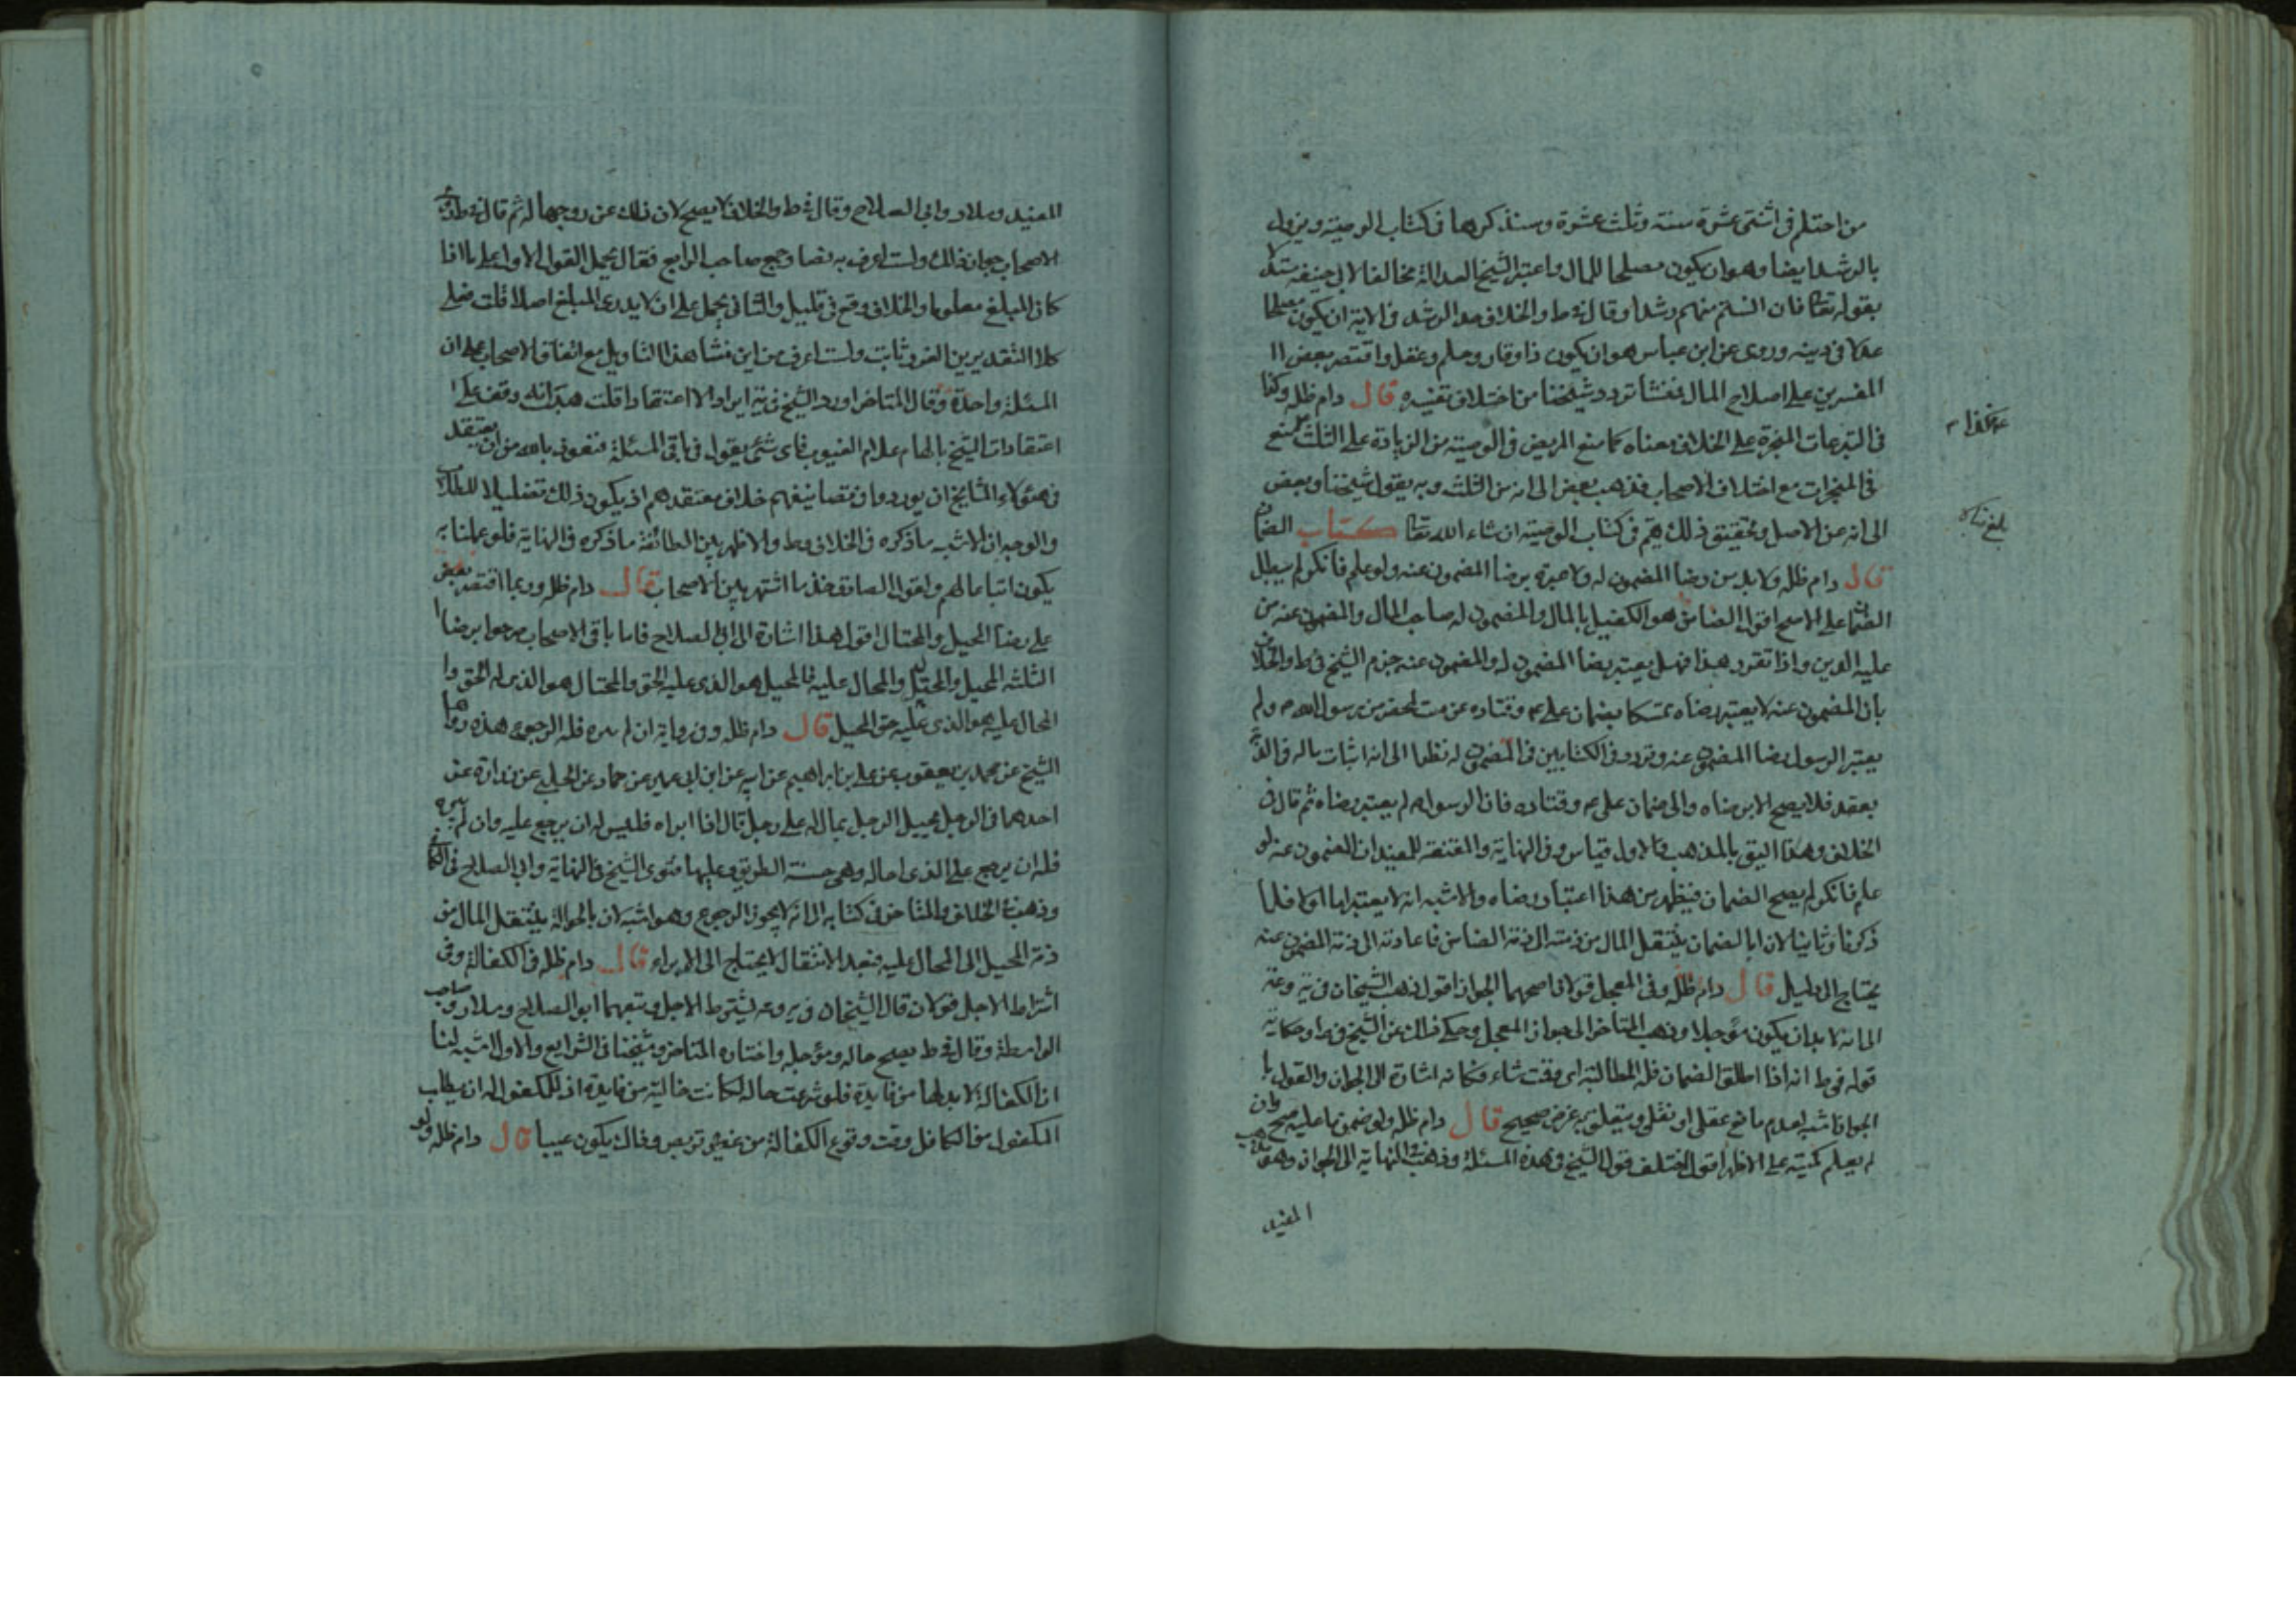 من احتلم فى اثنتى عشرة سنته وثلث عشرة وسنذكرها فى كتاب الوصية ويزول
بالرشد ايضا وهو ان يكون مصلحا للمال واعتبر الشيخ العدالة مخالفا لابى حنيفه
بقوله تعا فان انستم منهم رشدا وقال فى ط والخلاف حد الرشد فى الاية ان يكون مصلحا
عدلا فى دينه وروى عن ابن عباس هو ان يكون ذا وقار وحلم وعقل واقتصر بعض
المفسرين على اصلاح المال فنشأ تردد شيخنا من اختلاف تفسيره قال دام ظله وكذا
فى التبرعات المنجزة على الخلاف معناه كما منع المريض فى الوصيته من الزيادة على الثلث منع
فى المنجزات مع اختلاف الاصحاب فذهب بعض الى انه من الثلث وبه يقول شيخنا وبعض
الى انه من الاصل وتحقيق ذلك يتم فى كتاب الوصيته ان شاء الله تعا كتاب الضمان
قال دام ظله ولا بد من رضا المضمون له ولا عبرة برضا المضمون عنه ولو علم فانكر لم يبطل
الضمان على الاصح اقول الضامن هو الكفيل بالمال والمضمون له صاحب المال والمضمون عنه من
عليه الدين واذا تقرر هذا فهل يعتبر رضا المضمون له والمضمون عنه جزم الشيخ فى ط والخلاف
بان المضمون عنه لا يعتبر رضاه تمسكا بضمان على ع وقتاده عن ميت بمحضر من رسول الله ص ولم
يعتبر الرسول رضا المضمون عنه وتردد فى الكتابين فى المضمون له نظرا الى انه اثبات مال له فى الذمة
بعقد فلا يصح الا برضاه والى ضمان على ع وقتاده فان الرسول ص لم يعتبر رضاه ثم قال فى
الخلاف وهذا اليق بالمذهب فالاول قياس وفى النهاية والمقنعة للمفيد ان المضمون عنه لو
علم فانكر لم يصح الضمان فيظهر من هذا اعتبار رضاه والاشبه انه لا يعتبر اما اولا فلما
ذكرنا وثانيا لان بالضمان ينتقل المال من ذمته الى ذمة الضامن فاعادته الى ذمة المضمون عنه
يحتاج الى دليل قال دام ظله وفى المعجل قولان اصحهما الجواز اقول ذهب الشيخان فى يه وعه
الى انه لا بد ان يكون مؤجلا وذهب المتأخر الى جواز المعجل وحكى ذلك عن الشيخ فى ط وحكاية
قوله فى ط انه اذا اطلق الضمان فله المطالبة اى وقت شاء فكانه اشارة الى الجواز والقول با
الجواز اشبه لعدم مانع عقلى او نقلى ويتعلق به غرض صحيح قال دام ظله ولو ضمن ما عليه صح وان
لم يعلم كميته على الاظهر اقول اختلف قول الشيخ فى هذه المسئلة فذهب فى النهاية الى الجواز وهو مذهب
المفيد
بلغ
المفيد وسلار وابى الصلاح وقال فى ط والخلاف لا يصح لان ذلك عن
الاصحاب جواز ذلك ولست اعرف به نصا وجمع صاحب الرابع فقال يحمل القول الاول على ما اذا
كان المبلغ معلوما والخلاف وقع فى قليل والثانى يحمل على ان لا يدرى المبلغ اصلا قلت فعلى
كلا التقديرين الغرر ثابت ولست اعرف من اين نشا هذا التاويل مع اتفاق الاصحاب على ان
المسئلة واحدة وقال المتاخر اورد الشيخ فى يه ايرادا لا اعتقادا قلت هب انه وقف على
اعتقادات الشيخ بالهام علام الغيوب فاى شئ يقول فى باقى المسئلة فنعوذ بالله من ان يعتقد
فى هؤلاء المشايخ ان يوردوا فى تصانيفهم خلاف معتقدهم اذ يكون ذلك تضليلا
والوجه ان الاشبه ما ذكره فى الخلاف وط والاظهر بين الطائفة ما ذكره فى النهاية فلو عملنا به
يكون اتباعا لهم ولقول الصادق خذ ما اشتهر بين الاصحاب قال دام ظله وربما اقتصر بعض
على رضا المحيل والمحتال اقول هذا اشارة الى ابى الصلاح فاما باقى الاصحاب صرحوا برضا
الثلثه المحيل والمحتال والمحال عليه فالمحيل هو الذى عليه الحق والمحتال هو الذى له الحق وا
المحال عليه هو الذى عليه حق المحيل قال دام ظله وفى رواية ان لم يبره فله الرجوع هذه رواها
الشيخ عن محمد بن يعقوب عن على بن ابراهيم عن ابيه عن ابن ابى عمير عن حماد عن الحلبى عن زرارة عن
احدهما فى الرجل يحيل الرجل بمال له على رجل قال اذا ابراه فليس له ان يرجع عليه وان لم يبره
فله ان يرجع على الذى احاله وهى حسنة الطريق وعليها فتوى الشيخ فى النهاية وابى الصلاح فى الكافى
وذهب فى الخلاف والمتاخر فى كتابه الى انه لا يجوز الرجوع وهو اشبه لان بالحوالة ينتقل المال من
ذمة المحيل الى المحال عليه فبعد الانتقال لا يحتاج الى الابراء قال دام ظله فى الكفالة وفى
اشتراط الاجل قولان قال الشيخان فى يه وعه يشترط الاجل وتبعهما ابو الصلاح وسلار وصاحب
الواسطة وقال فى ط يصح حاله ومؤجله واختاره المتاخر وشيخنا فى الشرايع والاول اشبه لنا
ان الكفالة لا بد لها من فايدة فلو شرعت حاله لكانت خالية من فايدة اذ للمكفول له ان يطالب
المكفول من الكافل وقت وقوع الكفالة من غير تربص وذلك يكون عبثا قال دام ظله ولو